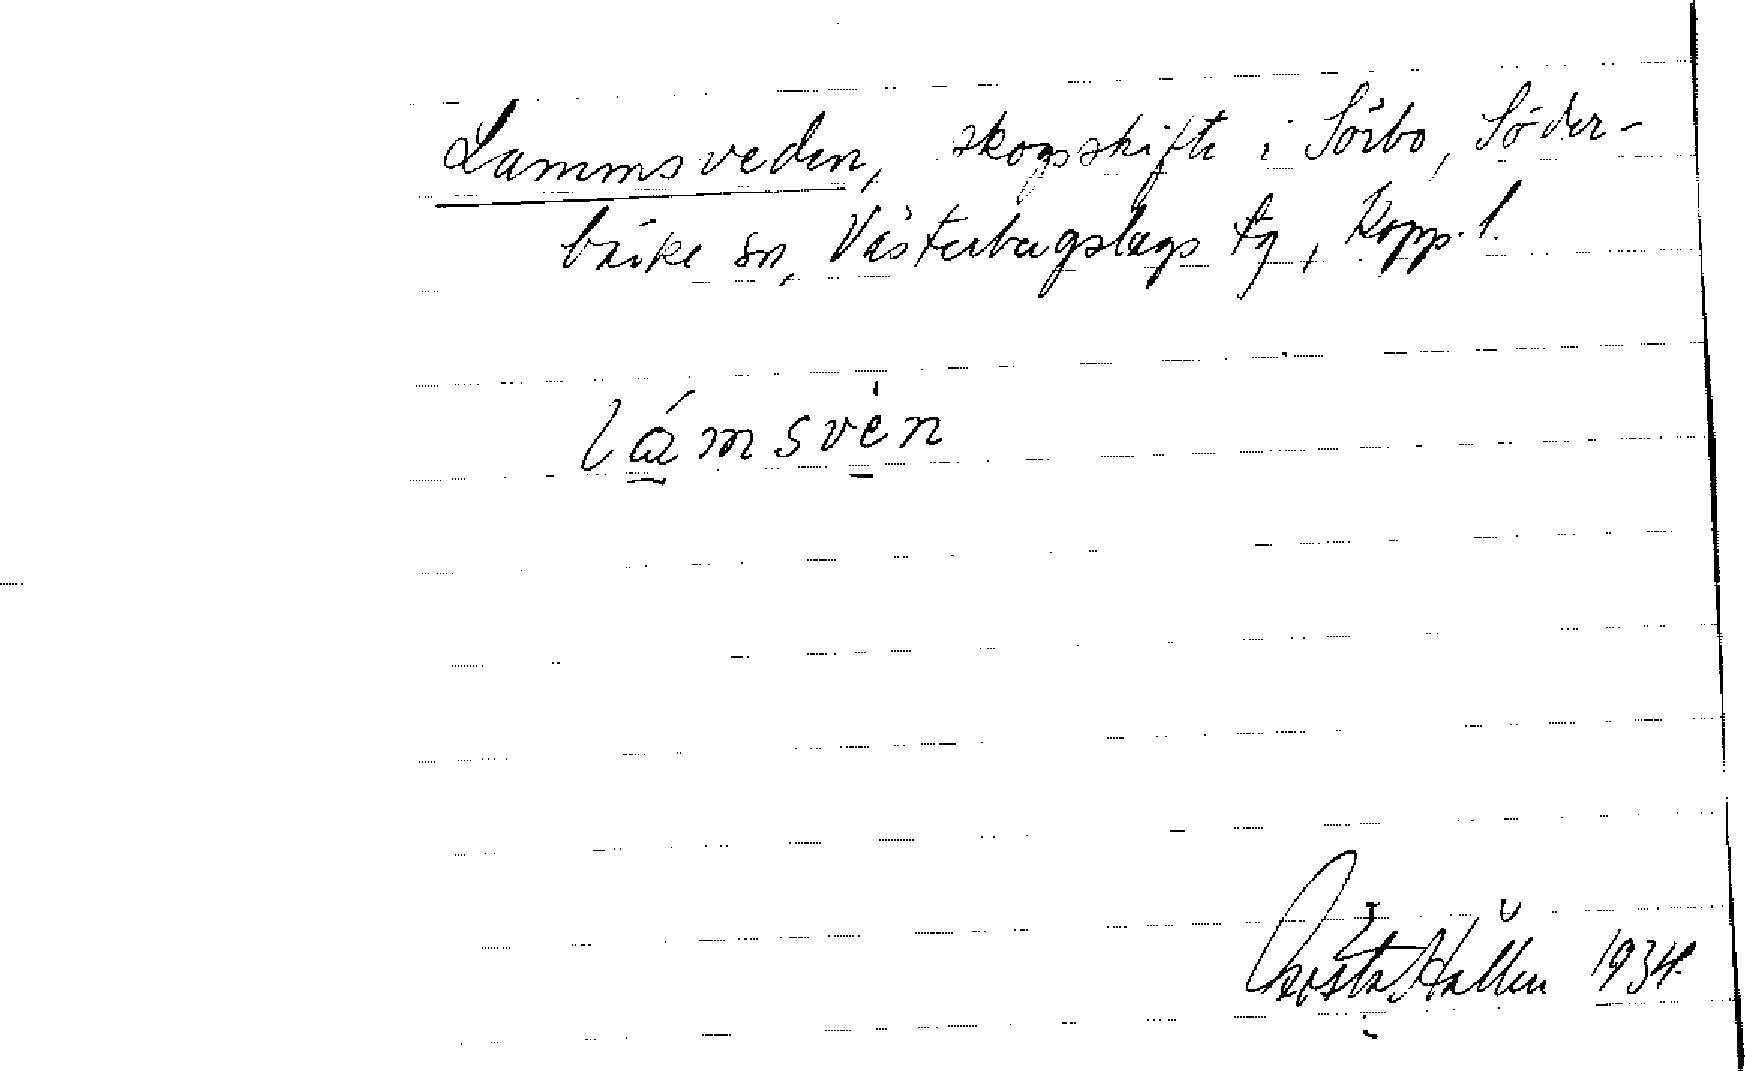 Lammsveden, skogsskifte i Sörbo, Söder-
bärke sn, Västerbergslags tg, Kopp. l.
lámsvèn
Gösta Hallen 1934.